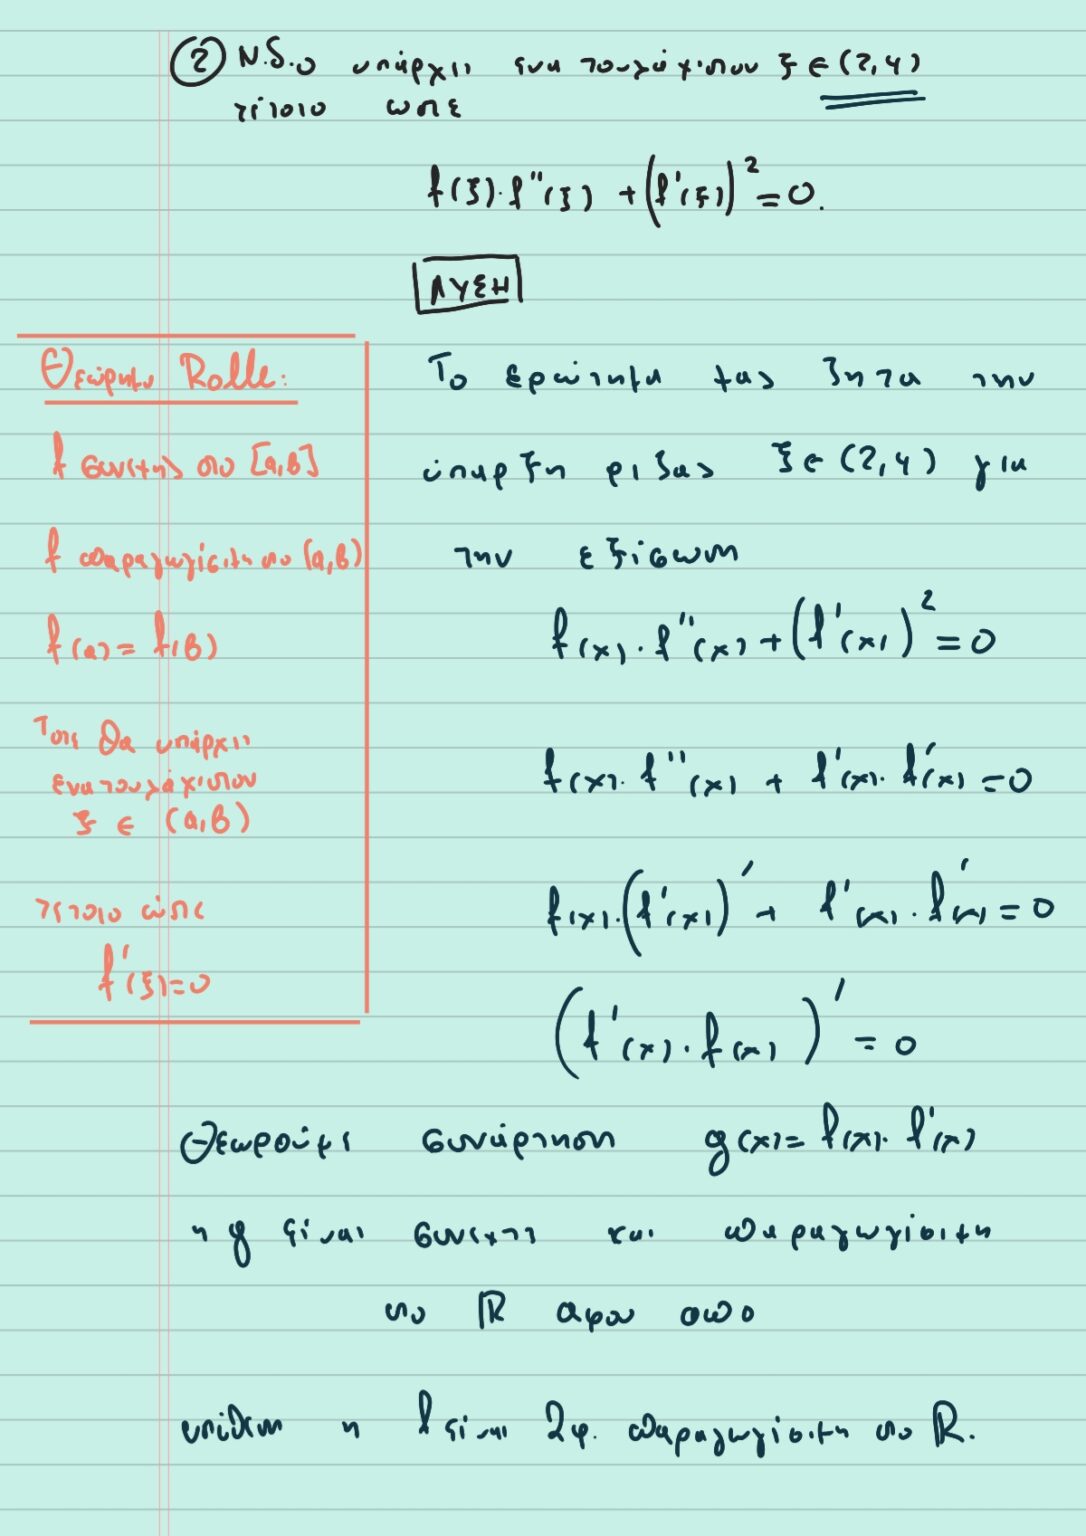 ② Ν.δ.ο υπάρχει ένα τουλάχιστον ξ ∈ (2,4)
τέτοιο ώστε
f(ξ)·f''(ξ) + (f'(ξ))² = 0.
ΛΥΣΗ
Θεώρημα Rolle:
f συνεχής στο [α,β]
f παραγωγίσιμη στο (α,β)
f(α) = f(β)
Τότε θα υπάρχει
ένα τουλάχιστον
ξ ∈ (α,β)
τέτοιο ώστε
f'(ξ)=0
Το ερώτημα μας ζητά την
ύπαρξη ρίζας ξ ∈ (2,4) για
την εξίσωση
f(x)·f''(x) + (f'(x))² = 0
f(x)·f''(x) + f'(x)·f'(x) = 0
f(x)·(f'(x))' + f'(x)·f'(x) = 0
(f'(x)·f(x))' = 0
Θεωρούμε συνάρτηση g(x) = f(x)·f'(x)
η g είναι συνεχής και παραγωγίσιμη
στο ℝ αφου απο
υπόθεση η f είναι 2φ. παραγωγίσιμη στο ℝ.